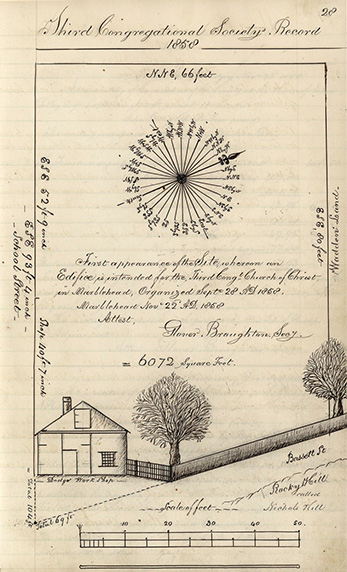 28
Third Congregational Society Record
1858
NNE, 66 feet
ESE 52 ft 9 inch
ESE 93 ft 9 inch
School Street
Shop 40 ft 7 inch
ESE 80 feet
Madden Land
First appearance of the Site, whereon an
Edifice is intended for the Third Congl. Church of Christ
in Marblehead, Organized Septr. 28 AD. 1858
Marblehead Nov 22d AD. 1858
Attest,
Glover Broughton, Secy
= 6072 Square Feet.
Dodge Work Shop
Bassett St
Rocky Hill
called
Nichols Hill
Scale of feet
10 20 30 40 50